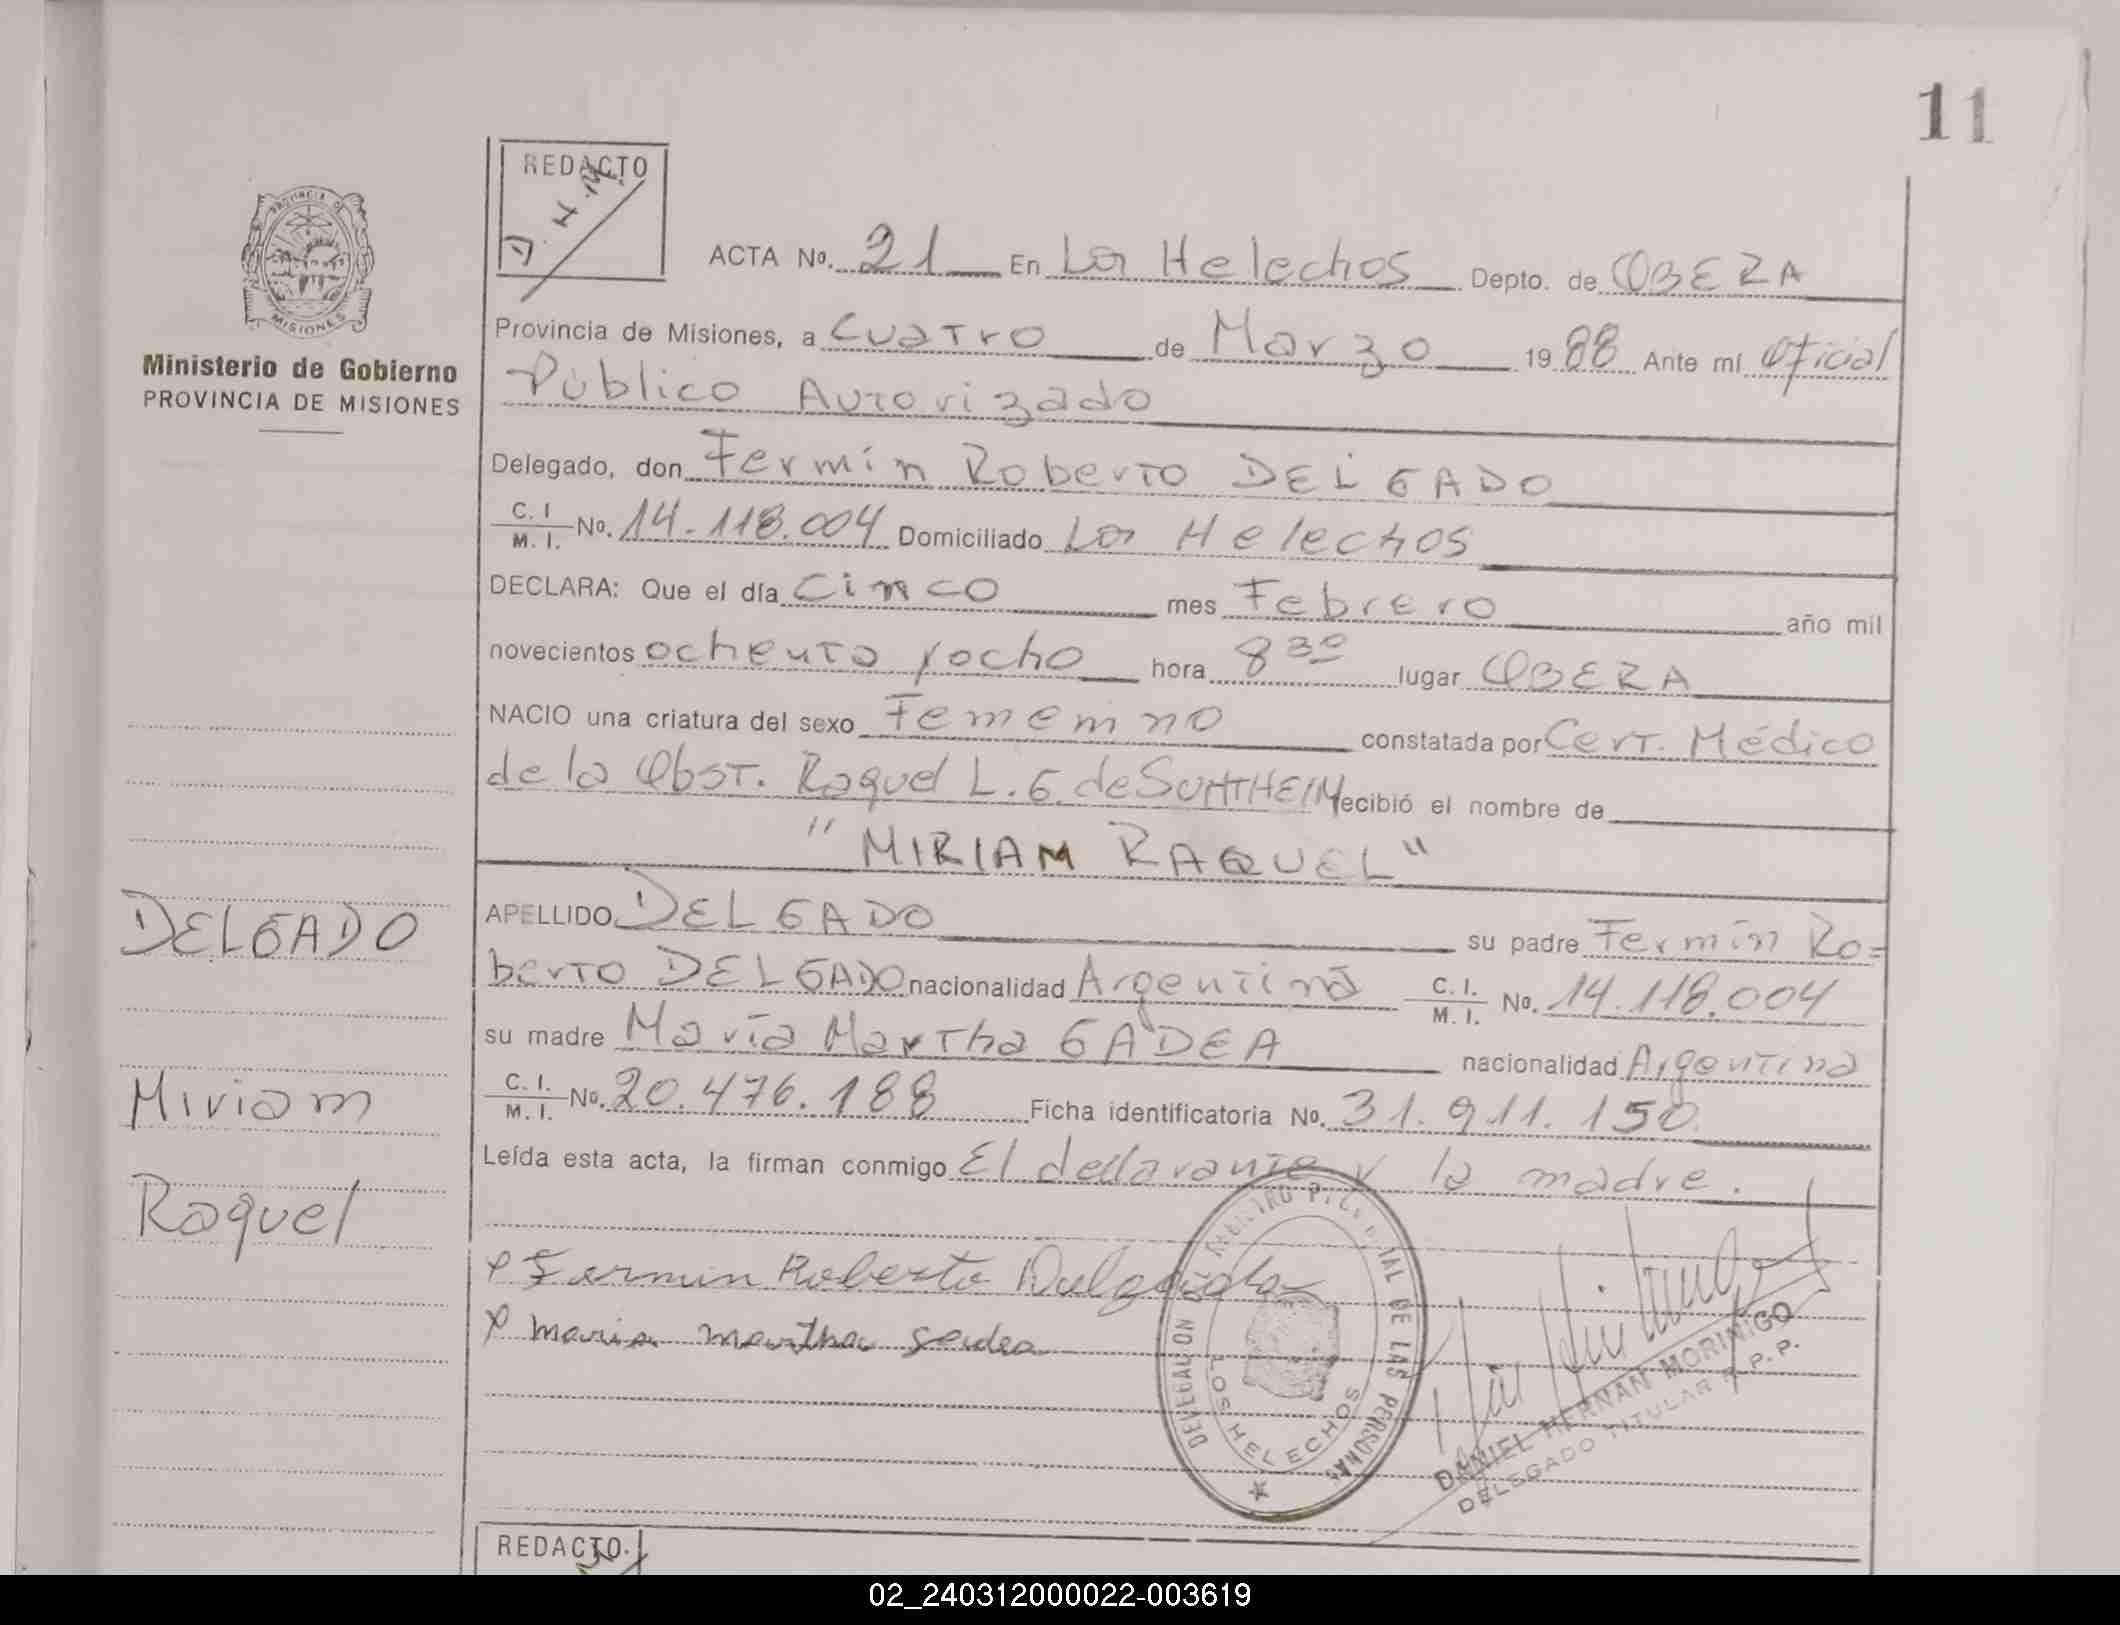 11
REDACTO
D. H. M.
PROVINCIA DE
MISIONES
Ministerio de Gobierno
PROVINCIA DE MISIONES
ACTA No. 21 En Los Helechos Depto. de OBERA
Provincia de Misiones, a Cuatro de Marzo 1988 Ante mí Oficial
Público Autorizado
Delegado, don Fermín Roberto DELGADO
C. I. M. I. No. 14.118.004 Domiciliado Los Helechos
DECLARA: Que el día Cinco mes Febrero año mil
novecientos ochenta y ocho hora 8 30 lugar OBERA
NACIO una criatura del sexo Femenino constatada por Cert. Médico
de la Obst. Raquel L. G. de recibió el nombre de
"MIRIAM RAQUEL"
APELLIDO DELGADO su padre Fermín Ro=
berto DELGADO nacionalidad Argentina C. I. M. I. No. 14.118.004
su madre María Martha GADEA nacionalidad Argentina
C. I. M. I. No. 20.476.188 Ficha identificatoria No. 31.911.150
Leída esta acta, la firman conmigo El declarante y la madre.
DELGADO
Miriam
Raquel
x Fermin Roberto Delgado
x maria martha gadea
DELEGACION REGISTRO PROVINCIAL DE LAS PERSONAS
LOS HELECHOS
DANIEL HERNAN MORINIGO
DELEGADO TITULAR R. P. P.
REDACTO
02_240312000022-003619